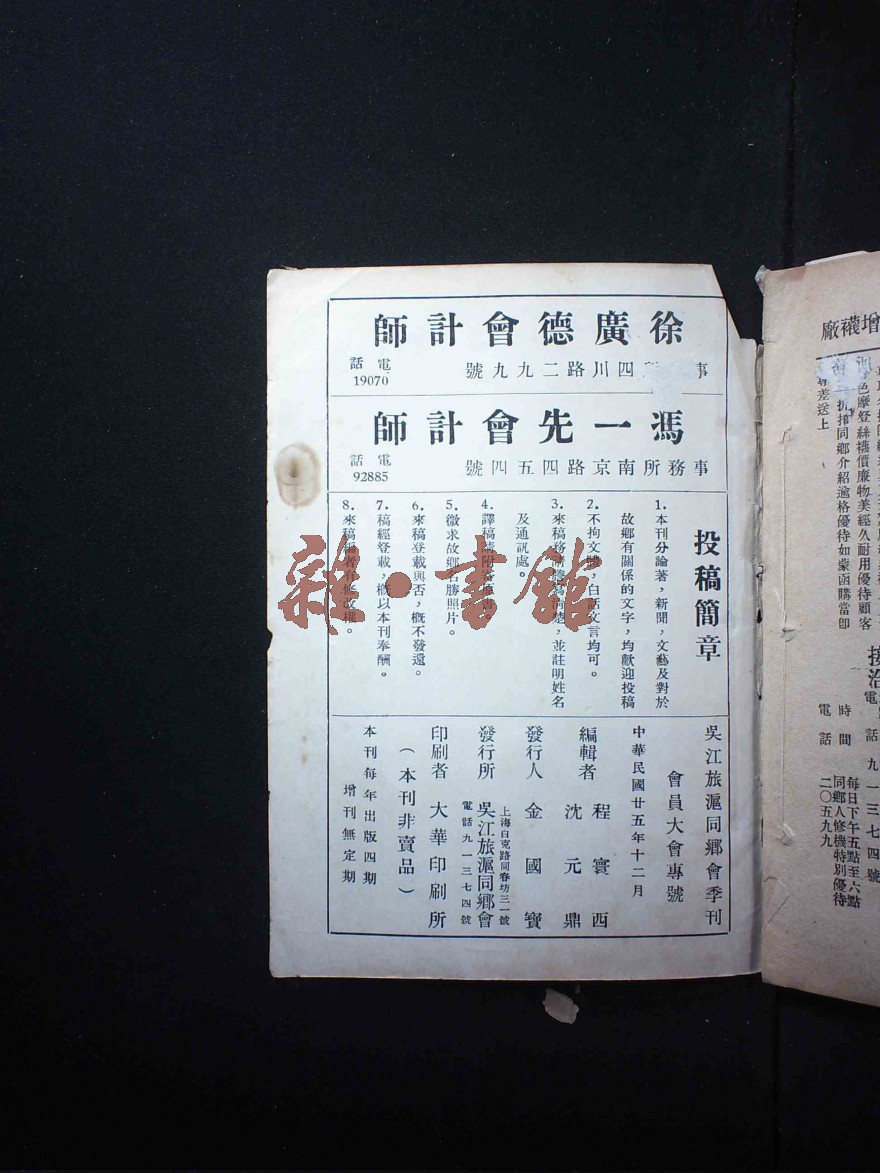 徐廣德會計師
事 四川路二九九號
電話
19070
馮一先會計師
事務所南京路四五四號
電話
92885
投稿簡章
1.本刊分論著，新聞，文藝及對於
故鄉有關係的文字，均歡迎投稿
2.不拘文體，白話文言均可。
3.來稿務請繕寫清楚，並註明姓名
及通訊處。
4.譯稿請附寄原書。
5.徵求故鄉名勝照片。
6.來稿登載與否，概不發還。
7.稿經登載，概以本刊奉酬。
8.來稿編者有修改權。
吳江旅滬同鄉會季刊
會員大會專號
中華民國廿五年十二月
編輯者 程寰西
沈元鼎
發行人 金國寶
發行所 吳江旅滬同鄉會
上海白克路同春坊三一號
電話九一三七四號
印刷者 大華印刷所
（本刊非賣品）
本刊每年出版四期
增刊無定期
雜·書館
增襪廠
色摩登絲襪價廉物美經久耐用優待顧客
折扣同鄉介紹逾格優待如蒙函購當卽
差送上
接洽
電話 九一三七四號
時間 每日下午五點至六點
同鄉人修機特別優待
電話 二〇五九九